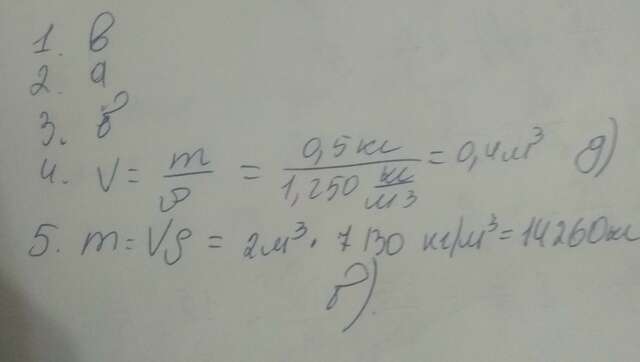 1. в
2. а
3. б
4. V = m/ρ = 0,5 кг / 1,250 кг/м³ = 0,4 м³ д)
5. m = Vρ = 2 м³ · 7130 кг/м³ = 14260 кг
б)